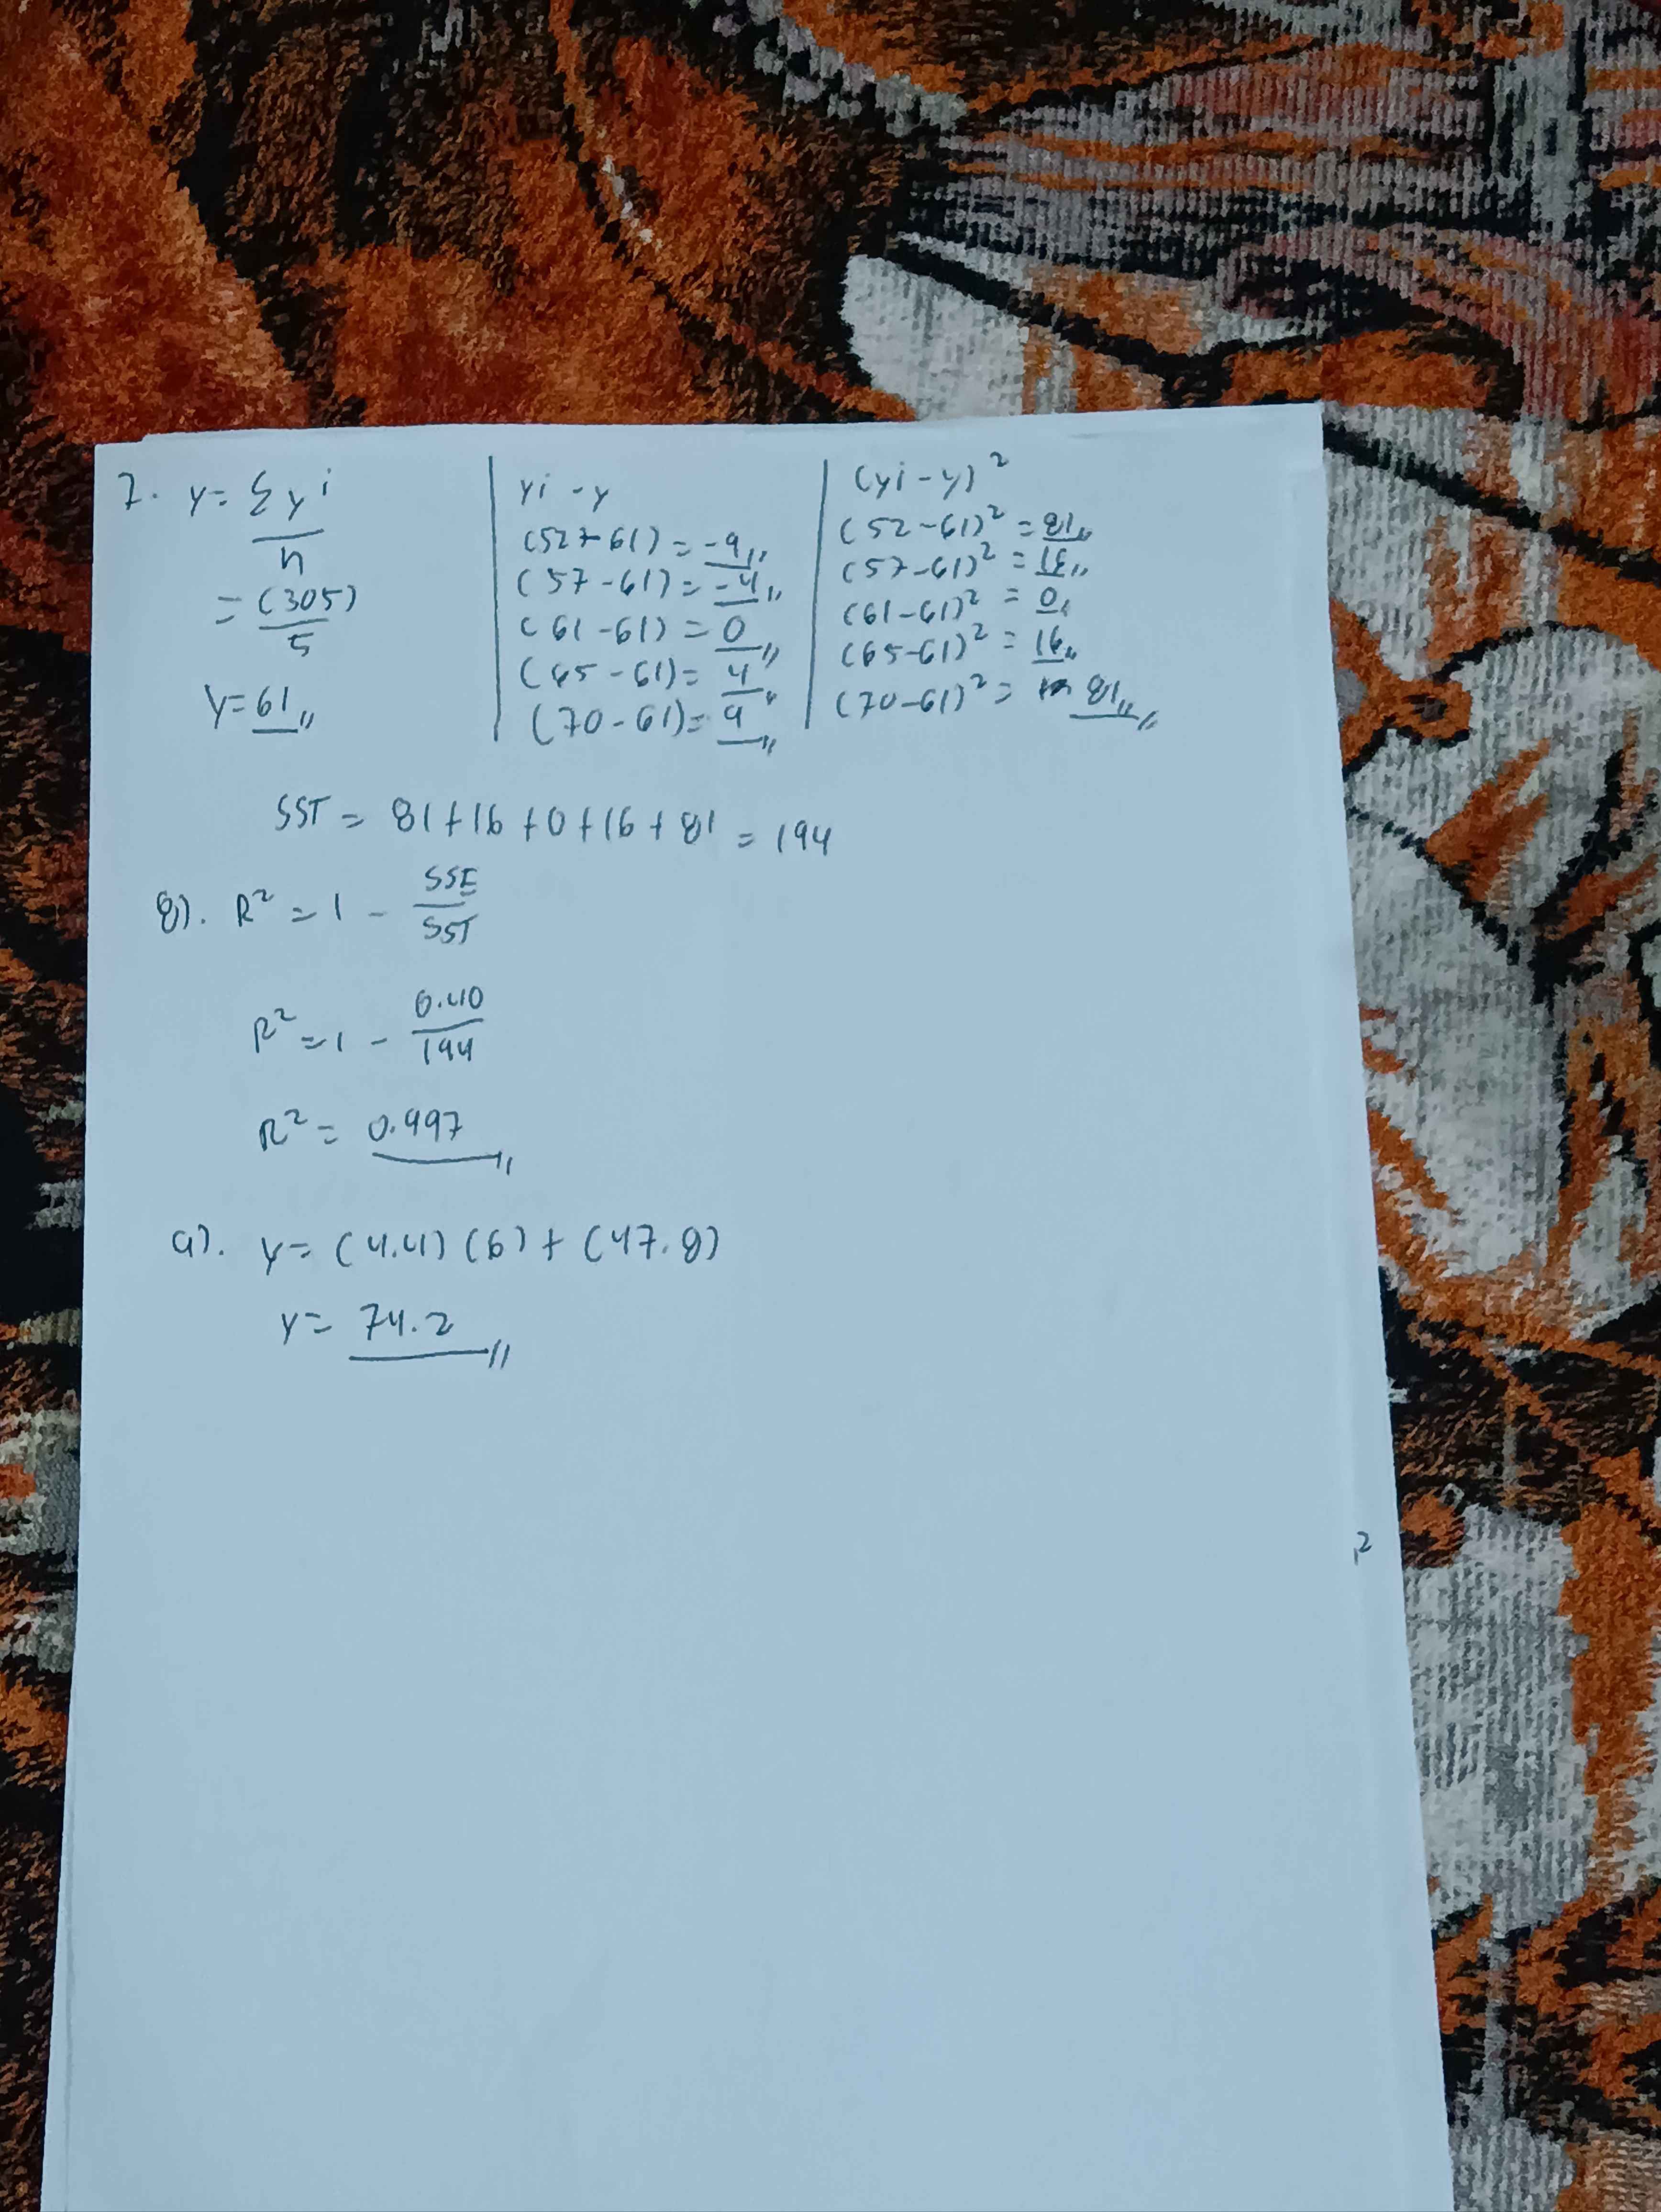 7. y = Σyi
n
= (305)
5
y = 61
yi - y
(52-61) = -9
(57-61) = -4
(61-61) = 0
(65-61) = 4
(70-61) = 9
(yi-y)²
(52-61)² = 81
(57-61)² = 16
(61-61)² = 0
(65-61)² = 16
(70-61)² = 81
SST = 81+16+0+16+81 = 194
8). R² = 1 - SSE
SST
R² = 1 - 0.40
194
R² = 0.997
9). y = (4.4)(6)+(47.8)
y = 74.2
2